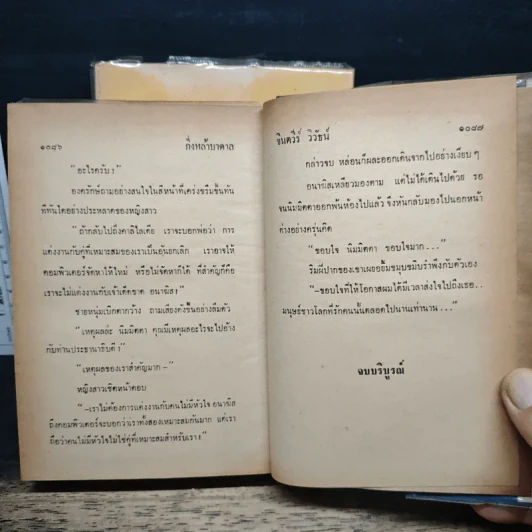 ๑๐๘๖
กิ่งหล้าบาดาล
"อะไรครับ?"
องครักษ์ถามอย่างสนใจในสีหน้าที่เคร่งขรึมขึ้นทัน
ทีทันใดอย่างประหลาดของหญิงสาว
"ถ้ากลับไปถึงคาลิโลเดีย เราจะบอกพ่อว่า การ
แต่งงานกับคู่ที่เหมาะสมของเราเป็นอันยกเลิก เราอาจให้
คอมพิวเตอร์จัดหาให้ใหม่ หรือไม่จัดหาก็ได้ ที่สำคัญก็คือ
เราจะไม่แต่งงานกับเจ้าเด็ดขาด อนาฆิส!"
ชายหนุ่มเบิกตากว้าง ถามเสียงดังขึ้นอย่างลืมตัว
"เหตุผลล่ะ นิมมิตดา คุณมีเหตุผลอะไรจะไปอ้าง
กับท่านประธานาธิบดี?"
"เหตุผลของเราสำคัญมาก–"
หญิงสาวเชิดหน้าตอบ
"–เราไม่ต้องการแต่งงานกับคนไม่มีหัวใจ อนาฆิส
ถึงคอมพิวเตอร์จะบอกว่าเราทั้งสองเหมาะสมกันมาก แต่เรา
ถือว่าคนไม่มีหัวใจไม่ใช่คู่ที่เหมาะสมสำหรับเรา!"
จินตวีร์ วิวัธน์
๑๐๘๗
กล่าวจบ หล่อนก็ผละออกเดินจากไปอย่างเงียบๆ
อนาฆิสเหลียวมองตาม แต่ไม่ได้เดินไปด้วย รอ
จนนิมมิตดาออกพ้นห้องไปแล้ว จึงหันกลับมองไปนอกหน้า
ต่างอย่างครุ่นคิด
"ขอบใจ นิมมิตดา ขอบใจมาก..."
ริมฝีปากของเขาเผยอยิ้มขมุบขมิบรำพึงกับตัวเอง
"–ขอบใจที่ให้โอกาสผมได้มีเวลาส่งใจไปถึงเธอ..
มนุษย์ชาวโลกที่รักคนนั้นตลอดไปนานเท่านาน..."
จบบริบูรณ์